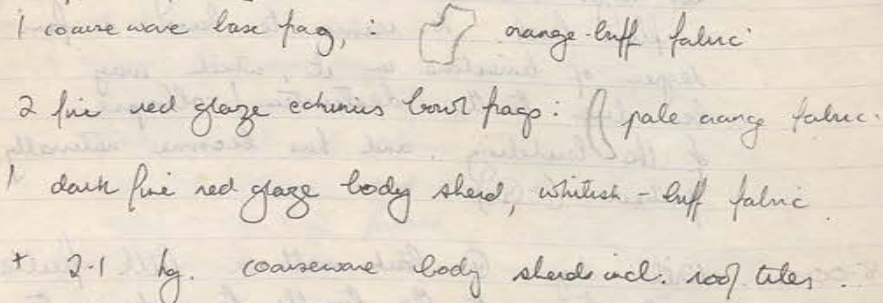 1 coarse ware base frag, : orange-buff fabric
2 fine red glaze echinus bowl frags: pale orange fabric.
1 dark fine red glaze body sherd, whitish-buff fabric.
+ 2.1 kg. coarseware body sherds incl. roof tiles.